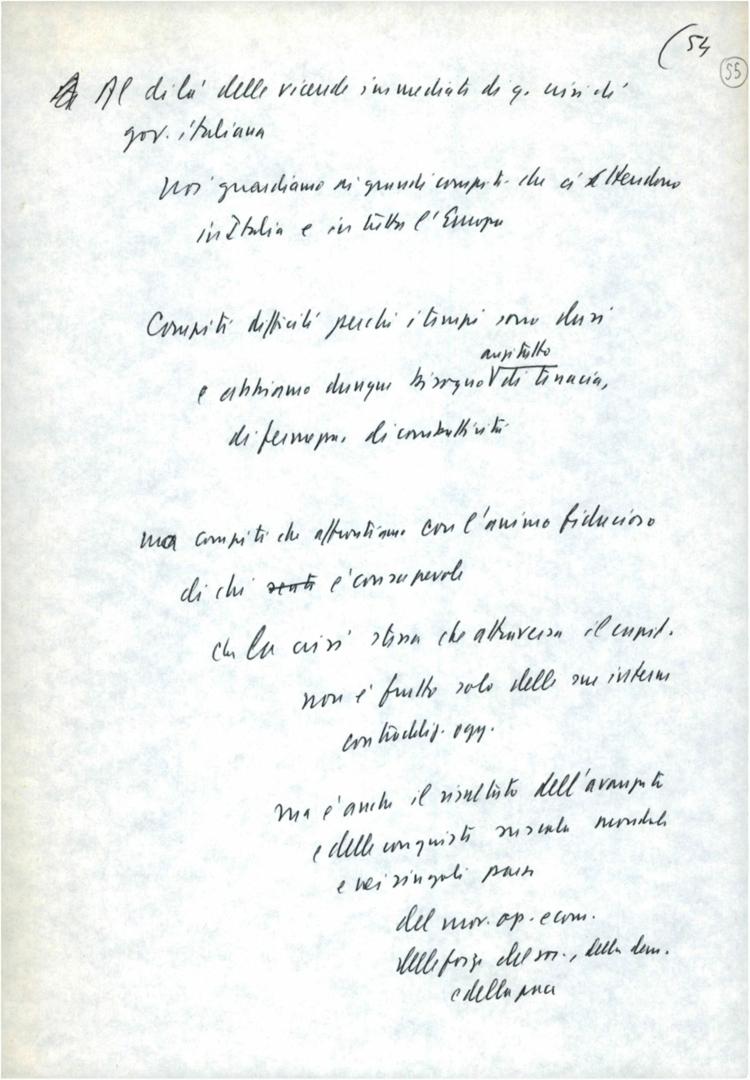 (54
55
Al di là delle vicende immediate di q. crisi di
gov. italiana
noi guardiamo ai grandi compiti che ci attendono
in Italia e in tutta l'Europa
Compiti difficili perché i tempi sono duri
anzitutto
e abbiamo dunque bisogno di tenacia,
di fermezza, di combattività
ma compiti che affrontiamo con l'animo fiducioso
di chi sente è consapevole
che la crisi stessa che attraversa il capit.
non è frutto solo delle sue interne
contraddiz. ogg.
ma è anche il risultato dell'avanzata
e delle conquiste su scala mondiale
e nei singoli paesi
del mov. op. e com.
delle forze del soc., della dem.
e della pace